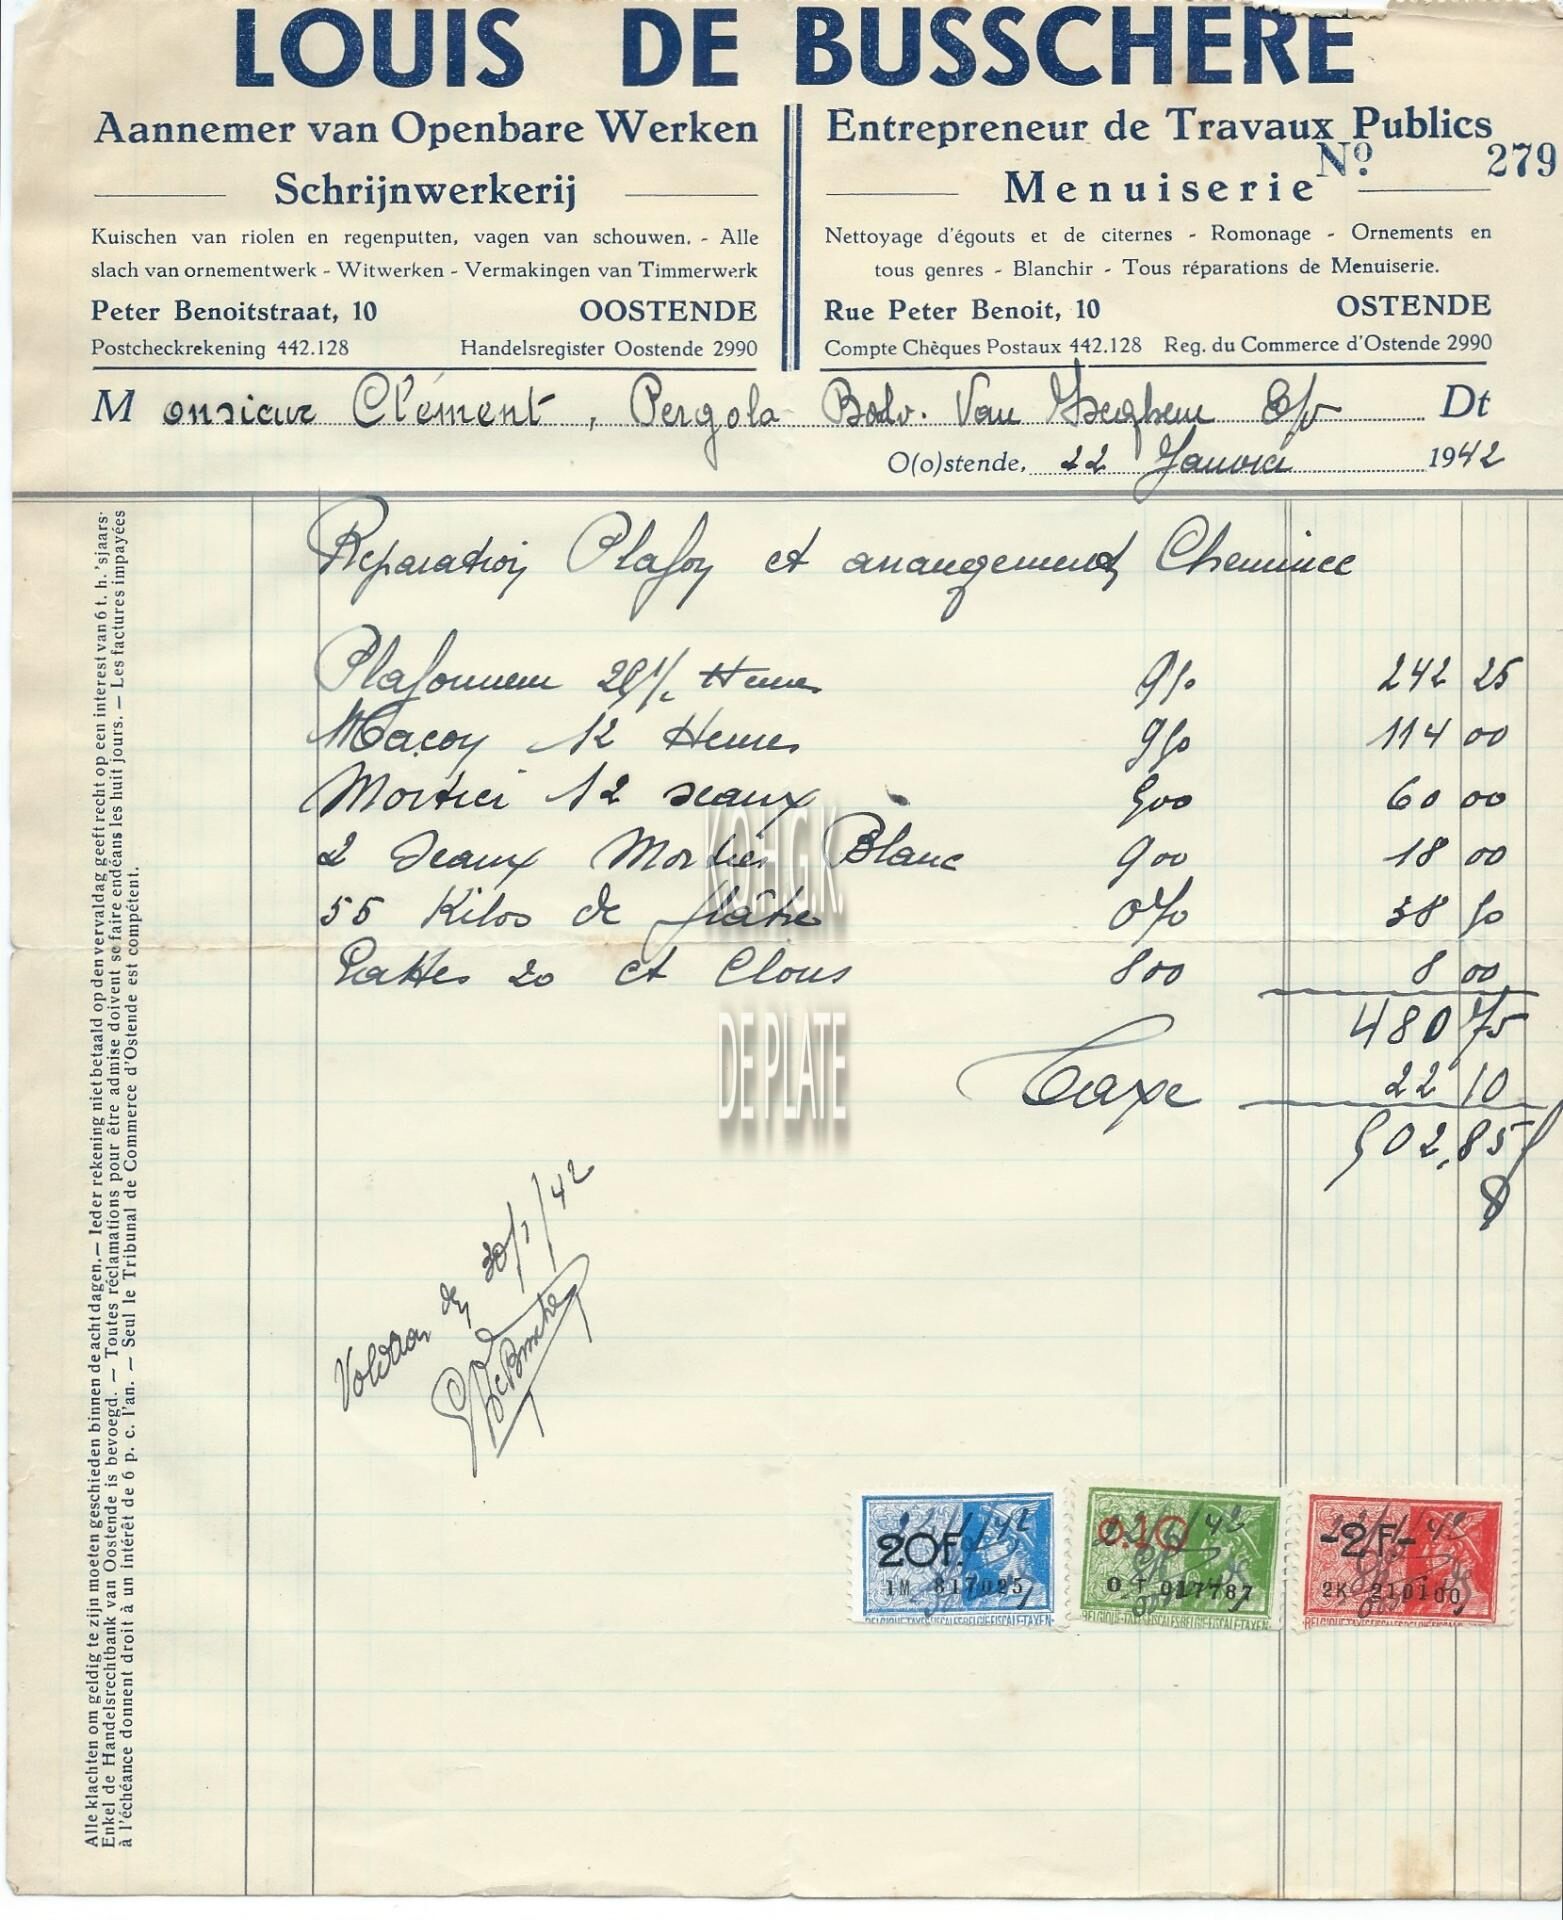 LOUIS DE BUSSCHERE
Aannemer van Openbare Werken
Schrijnwerkerij
Kuischen van riolen en regenputten, vagen van schouwen. - Alle
slach van ornementwerk - Witwerken - Vermakingen van Timmerwerk
Peter Benoitstraat, 10 OOSTENDE
Postcheckrekening 442.128 Handelsregister Oostende 2990
Entrepreneur de Travaux Publics
No. 279
Menuiserie
Nettoyage d'égouts et de citernes - Romonage - Ornements en
tous genres - Blanchir - Tous réparations de Menuiserie.
Rue Peter Benoit, 10 OSTENDE
Compte Chèques Postaux 442.128 Reg. du Commerce d'Ostende 2990
Monsieur Clément, Pergola Bodv. Van Iseghem E/v Dt
O(o)stende, 22 Janvier 1942
Reparation Plafon et arrangement Cheminee
Plafonneur 25 1/2 Heures 950 242 25
Macon 12 Heures 950 114 00
Mortier 12 seaux 500 60 00
2 Seaux Mortier Blanc 900 18 00
55 Kilos de plâtre 070 38 50
Pattes 20 et Clous 800 8 00
480 75
Taxe 22 10
502,85 f
Voldaan den 30/1/42
De Busschere
20F.
1M 817025
BELGIQUE-TAXES FISCALES BELGIE-FISCALE-TAXEN
0.10
22/1/42
0 T 017787
BELGIQUE-TAXES FISCALES BELGIE-FISCALE-TAXEN
-2F-
22/1/42
2K 210100
BELGIQUE-TAXES FISCALES BELGIE-FISCALE
Alle klachten om geldig te zijn moeten geschieden binnen de acht dagen. — Ieder rekening niet betaald op den vervaldag geeft recht op een interest van 6 t. h. 'sjaars-
Enkel de Handelsrechtbank van Oostende is bevoegd. — Toutes réclamations pour être admise doivent se faire endéans les huit jours. — Les factures impayées
à l'échéance donnent droit à un intérêt de 6 p. c. l'an. — Seul le Tribunal de Commerce d'Ostende est compétent.
K.O.H.G.K
DE PLATE